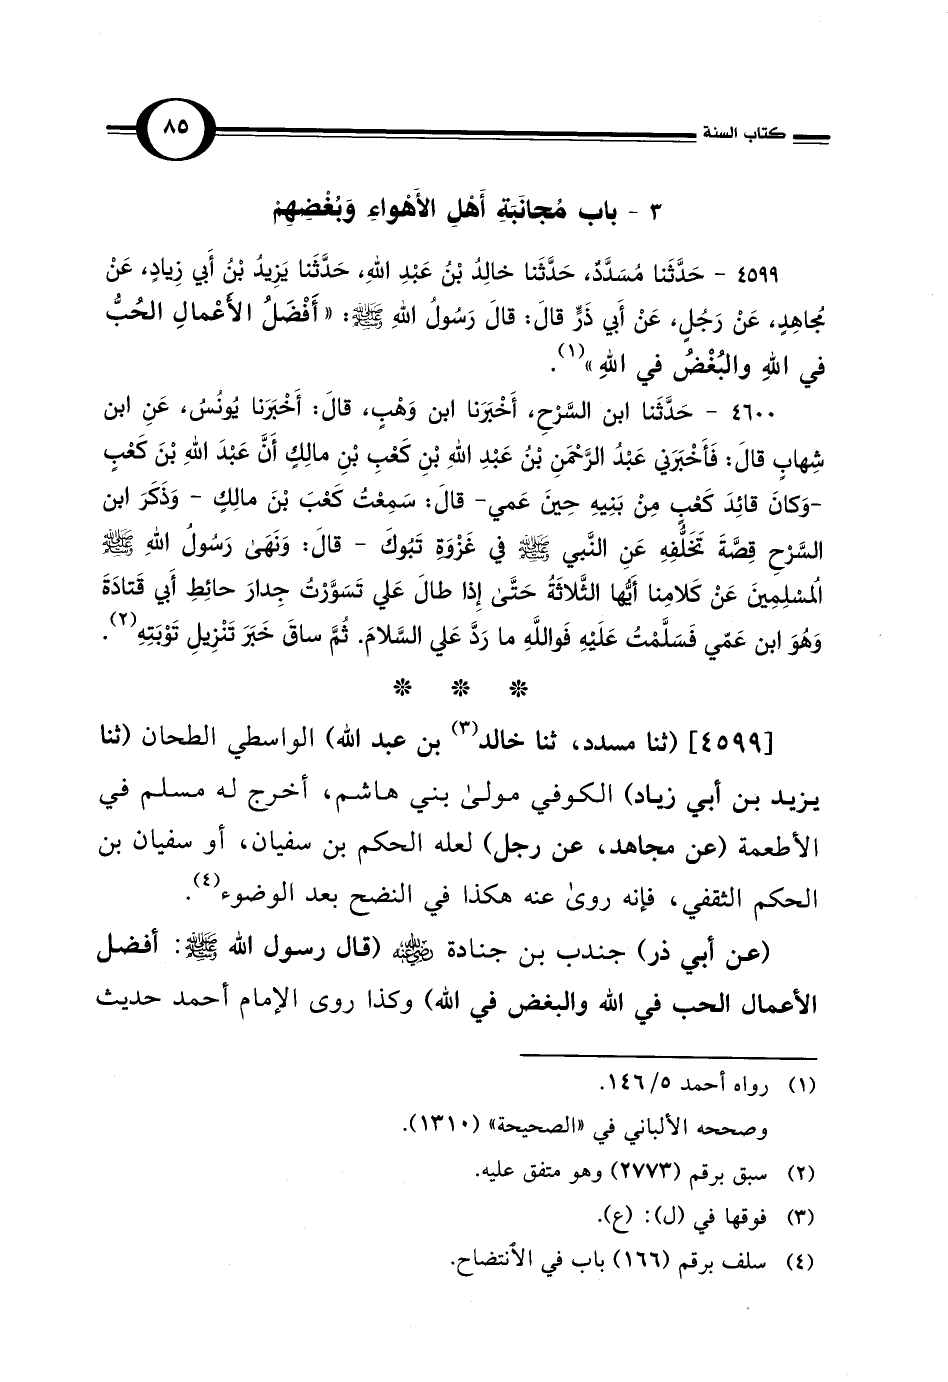 كتاب السنة ٨٥
٣ - باب مُجانَبَةِ أَهْلِ الأَهْواءِ وَبُغْضِهِمْ
٤٥٩٩ - حَدَّثَنا مُسَدَّدٌ، حَدَّثَنا خالِدُ بْنُ عَبْدِ اللهِ، حَدَّثَنا يَزِيدُ بْنُ أَبي زِيادٍ، عَنْ
مُجاهِدٍ، عَنْ رَجُلٍ، عَنْ أَبي ذَرٍّ قالَ: قالَ رَسُولُ اللهِ ﷺ: «أَفْضَلُ الأَعْمالِ الحُبُّ
في اللهِ والبُغْضُ في اللهِ»(١).
٤٦٠٠ - حَدَّثَنا ابن السَّرْحِ، أَخْبَرَنا ابن وَهْبٍ، قالَ: أَخْبَرَنا يُونُسُ، عَنِ ابن
شِهابٍ قالَ: فَأَخْبَرَني عَبْدُ الرَّحْمَنِ بْنُ عَبْدِ اللهِ بْنِ كَعْبِ بْنِ مالِكٍ أَنَّ عَبْدَ اللهِ بْنَ كَعْبٍ
-وَكانَ قائِدَ كَعْبٍ مِنْ بَنِيهِ حِينَ عَمي- قالَ: سَمِعْتُ كَعْبَ بْنَ مالِكٍ - وَذَكَرَ ابن
السَّرْحِ قِصَّةَ تَخَلُّفِهِ عَنِ النَّبي ﷺ في غَزْوَةِ تَبُوكَ - قالَ: وَنَهَىٰ رَسُولُ اللهِ ﷺ
المُسْلِمِينَ عَنْ كَلامِنا أَيُّها الثَّلاثَةُ حَتَّىٰ إِذا طالَ عَلي تَسَوَّرْتُ جِدارَ حائِطِ أَبي قَتادَةَ
وَهُوَ ابن عَمّي فَسَلَّمْتُ عَلَيْهِ فَواللهِ ما رَدَّ عَلي السَّلامَ. ثُمَّ ساقَ خَبَرَ تَنْزِيلِ تَوْبَتِهِ(٢).
* * *
[٤٥٩٩] (ثنا مسدد، ثنا خالد(٣) بن عبد الله) الواسطي الطحان (ثنا
يزيد بن أبي زياد) الكوفي مولىٰ بني هاشم، أخرج له مسلم في
الأطعمة (عن مجاهد، عن رجل) لعله الحكم بن سفيان، أو سفيان بن
الحكم الثقفي، فإنه روىٰ عنه هكذا في النضح بعد الوضوء(٤).
(عن أبي ذر) جندب بن جنادة رضي الله عنه (قال رسول الله ﷺ: أفضل
الأعمال الحب في الله والبغض في الله) وكذا روى الإمام أحمد حديث
(١) رواه أحمد ٥/ ١٤٦.
وصححه الألباني في «الصحيحة» (١٣١٠).
(٢) سبق برقم (٢٧٧٣) وهو متفق عليه.
(٣) فوقها في (ل): (ع).
(٤) سلف برقم (١٦٦) باب في الٱنتضاح.